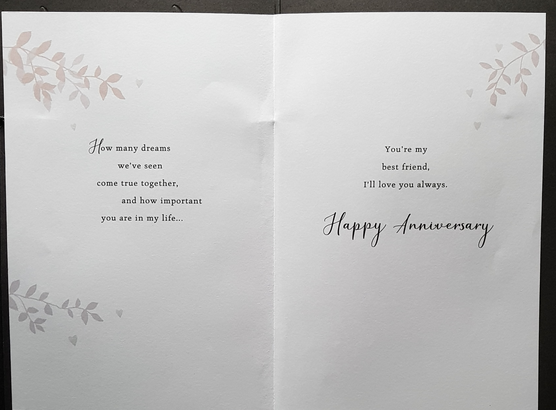 How many dreams
we've seen
come true together,
and how important
you are in my life...
You're my
best friend,
I'll love you always.
Happy Anniversary